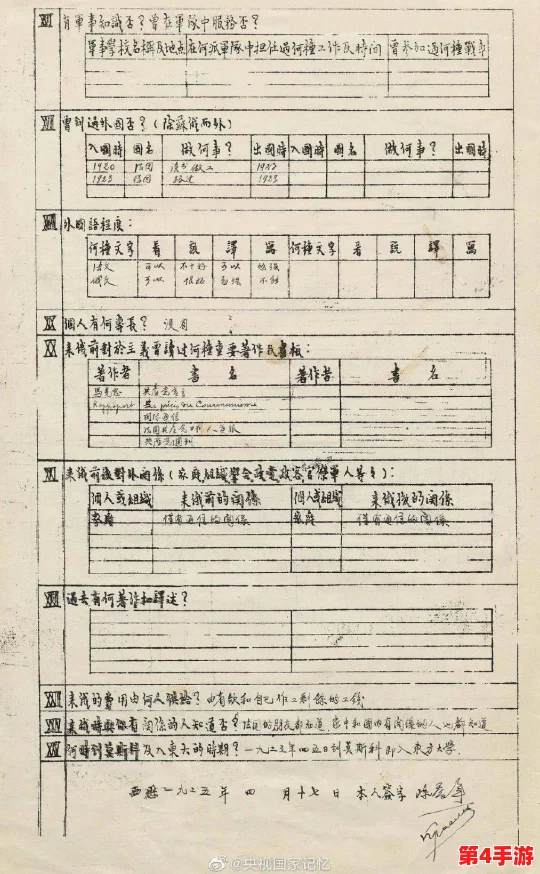 XVI 有軍事知識否？曾在軍隊中服務否？
軍事學校名稱及地点 在何派軍隊中担任過何種工作及時间 曾参加過何種戰爭
XVII 曾到過外国否？（除蘇俄而外）
入國時 國名 做何事？ 出國時 入國時 國名 做何事？ 出國時
1920 法國 读书做工 1923
1923 德國 路过 1923
外國語程度：
何種文字 看 説 譯 寫 何種文字 看 説 譯 寫
法文 可以 不十好 可以 勉强
俄文 可以 不能
XIX 個人有何專長？ 没有
XX 来俄前對於主義曾讀过何種重要著作及書報：
著作者 書名 著作者 書名
馬克思 共产党宣言
Rappoport Précis du Communisme
XXI 来俄前後對外関係（家庭組織學会及党政客官僚軍人等等）：
個人或組織 来俄前的関係 個人或組織 来俄後的関係
家庭 僅有通信的関係 家庭 僅有通信的関係
XXII 過去有何著作和譯述？
来俄的費用由何人供给？由有欵和自己作工剩餘的工錢
来俄時與你有関係的人知道否？法國的朋友都知道 家中和國内有関係的人也都知道
何時到莫斯科及入東大的時期？一九二三年四五日到莫斯科即入东方大学
西歷一九二五年 四 月十七日 本人簽字 陈
@央视国家记忆
第4手游